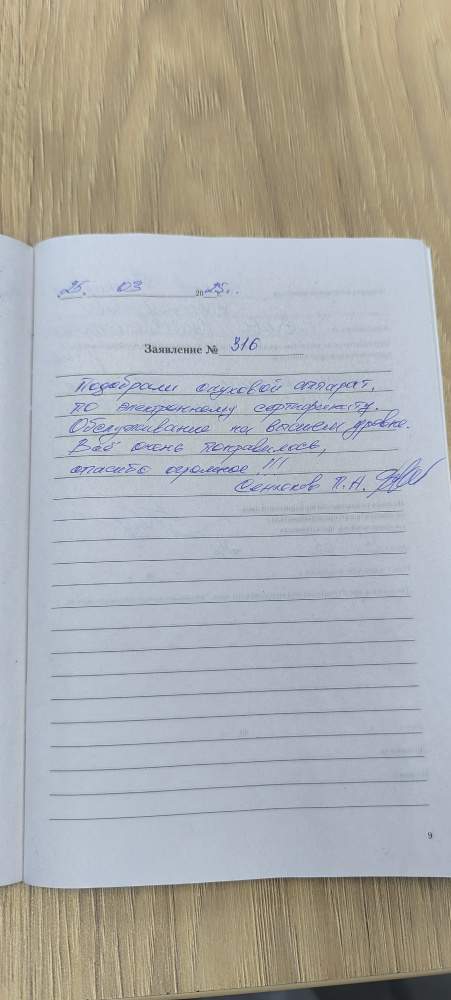 25. 03 2025г.
Заявление № 316
Подобрали слуховой аппарат,
по электронному сертификату.
Обслуживание на высшем уровне.
Всё очень понравилось,
спасибо огромное !!!
П.А.
9